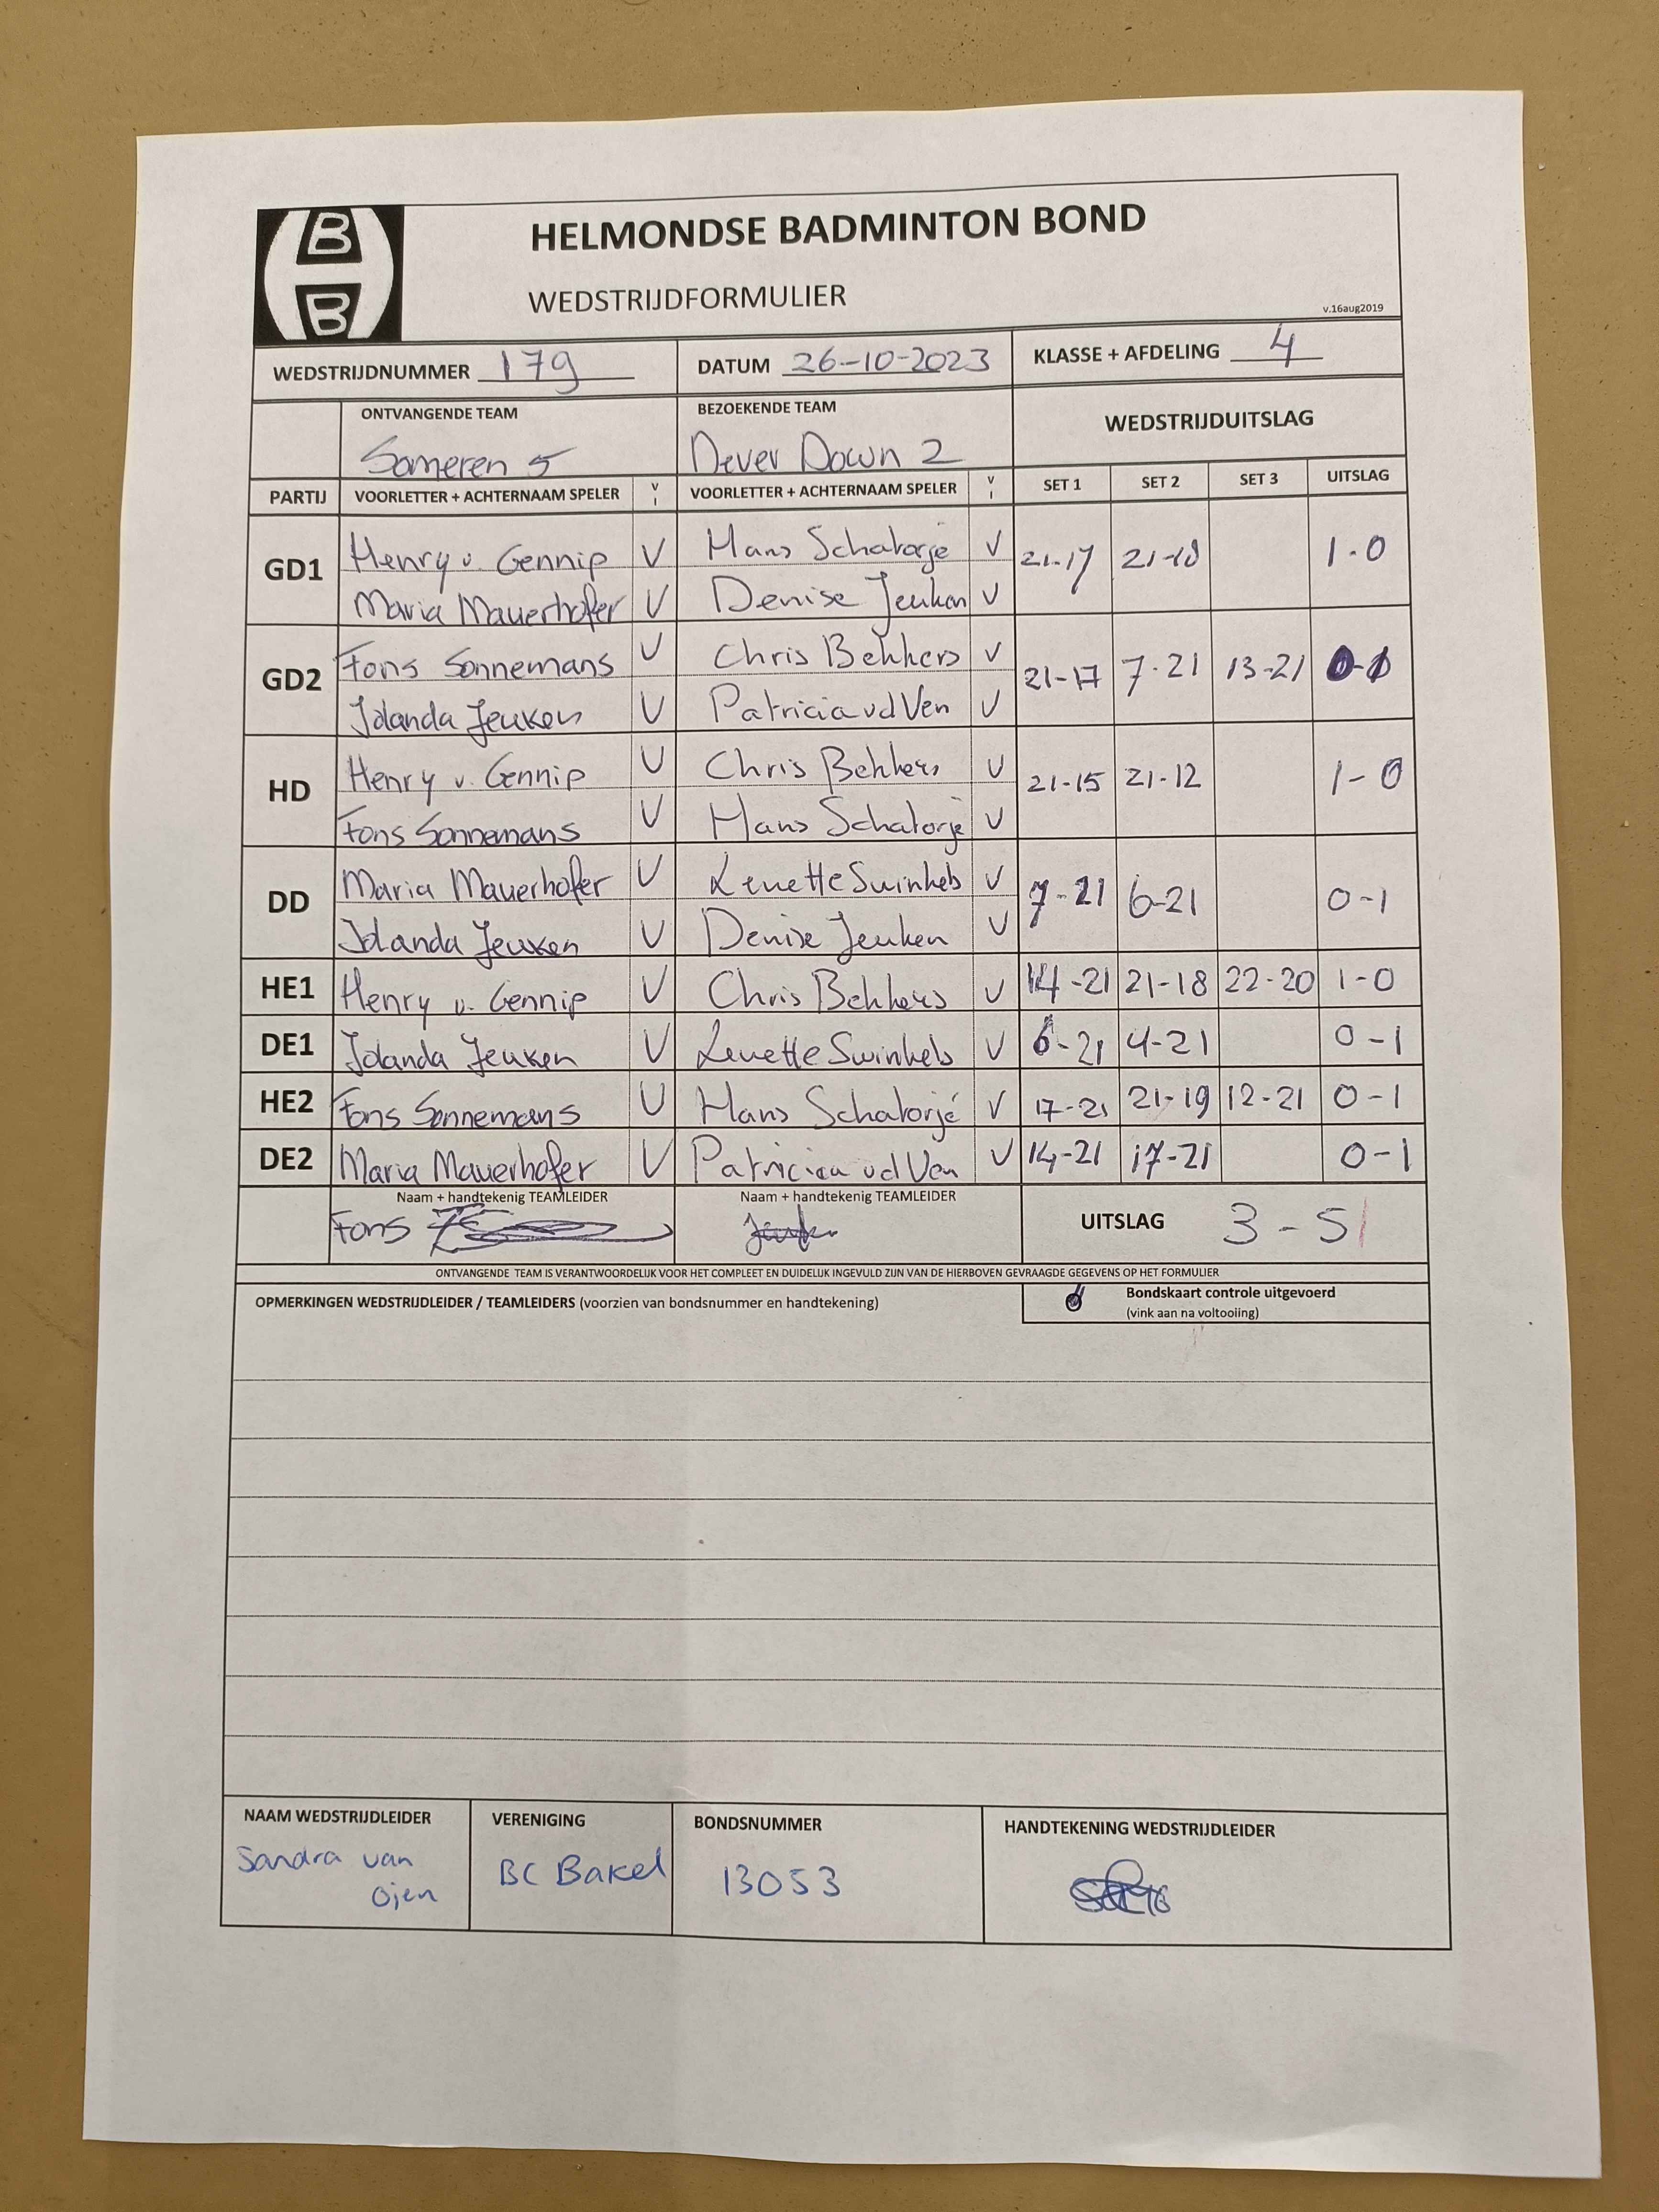 B
B
HELMONDSE BADMINTON BOND
WEDSTRIJDFORMULIER
v.16aug2019
WEDSTRIJDNUMMER 179 DATUM 26-10-2023 KLASSE + AFDELING 4
ONTVANGENDE TEAM BEZOEKENDE TEAM WEDSTRIJDUITSLAG
Someren 5 Never Down 2
PARTIJ VOORLETTER + ACHTERNAAM SPELER V I VOORLETTER + ACHTERNAAM SPELER V I SET 1 SET 2 SET 3 UITSLAG
GD1 Henry v. Gennip V Hans Schatorjé V 21-17 21-18 1-0
Maria Mauerhofer V Denise Jeuken V
GD2 Fons Sonnemans V Chris Bekkers V 21-17 7-21 13-21 0-1
Jolanda Jeuken V Patricia vd Ven V
HD Henry v. Gennip V Chris Bekkers V 21-15 21-12 1-0
Fons Sonnemans V Hans Schatorjé V
DD Maria Mauerhofer V Lenette Swinkels V 7-21 6-21 0-1
Jolanda Jeuken V Denise Jeuken V
HE1 Henry v. Gennip V Chris Bekkers V 14-21 21-18 22-20 1-0
DE1 Jolanda Jeuken V Lenette Swinkels V 6-21 4-21 0-1
HE2 Fons Sonnemans V Hans Schatorjé V 17-21 21-19 12-21 0-1
DE2 Maria Mauerhofer V Patricia vd Ven V 14-21 17-21 0-1
Naam + handtekenig TEAMLEIDER Naam + handtekenig TEAMLEIDER UITSLAG 3-5
Fons
ONTVANGENDE TEAM IS VERANTWOORDELIJK VOOR HET COMPLEET EN DUIDELIJK INGEVULD ZIJN VAN DE HIERBOVEN GEVRAAGDE GEGEVENS OP HET FORMULIER
OPMERKINGEN WEDSTRIJDLEIDER / TEAMLEIDERS (voorzien van bondsnummer en handtekening) Bondskaart controle uitgevoerd
(vink aan na voltooiing)
NAAM WEDSTRIJDLEIDER VERENIGING BONDSNUMMER HANDTEKENING WEDSTRIJDLEIDER
Sandra van BC Bakel 13053
Ojen